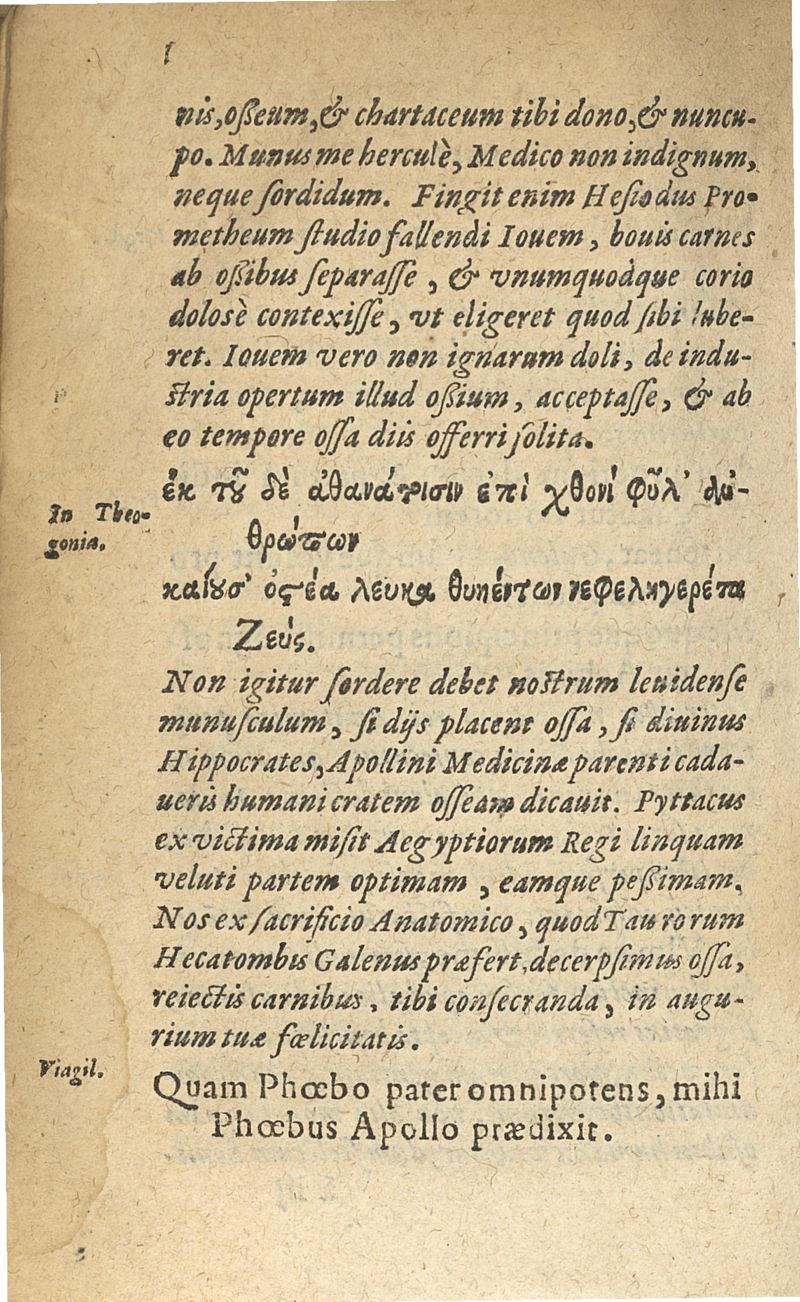 nis, osseum, & chartaceum tibi dono, & nuncu-
po. Munus me herculè, Medico non indignum,
neque sordidum. Fingit enim Hesiodus Pro-
metheum studio fallendi Iouem, bouis carnes
ab ossibus separasse, & vnumquodque corio
dolosè contexisse, vt eligeret quod sibi lube-
ret. Iouem vero non ignarum doli, de indu-
stria opertum illud ossium, acceptasse, & ab
eo tempore ossa diis offerri solita.
ἐκ τοῦ δὲ ἀθανάτοισιν ἐπὶ χθονὶ φῦλ' ἀν-
In Theo-
gonia.
θρώπων
καίουσ' ὀστέα λευκὰ θυηέντων νεφεληγερέτα
Ζεύς.
Non igitur sordere debet nostrum leuidense
munusculum, si dijs placent ossa, si diuinus
Hippocrates, Apollini Medicinæ parenti cada-
ueris humani cratem osseam dicauit. Pyttacus
ex victima misit Aegyptiorum Regi linquam
veluti partem optimam, eamque pessimam.
Nos ex sacrificio Anatomico, quod Taurorum
Hecatombis Galenus præfert, decerpsimus ossa,
reiectis carnibus, tibi consecranda, in augu-
rium tuæ fœlicitatis.
Viagil.
Quam Phœbo pater omnipotens, mihi
Phœbus Apollo prædixit.